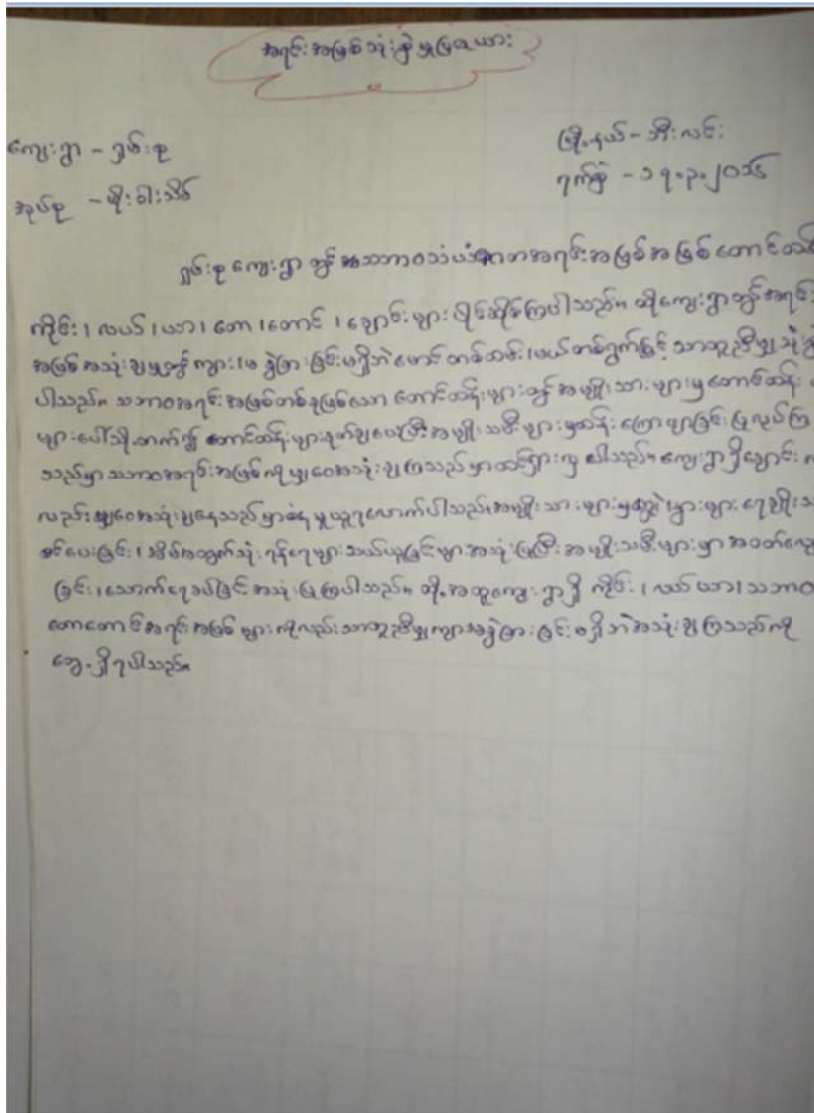 အရင်းအမြစ်သုံးစွဲမှုပြဇယား
မြို့နယ် - ဘီးလင်း
ကျေးရွာ - ရှမ်းစု
ရက်စွဲ - ၁၇.၃.၂၀၁၆
အုပ်စု - မိုးခါးသစ်
ရှမ်းစုကျေးရွာတွင် သဘာဝသယံဇာတအရင်းအမြစ်အဖြစ် တောင်ထန်
ကိုင်း၊ လယ်၊ ယာ၊ တော၊ တောင်၊ ချောင်းများ ပိုင်ဆိုင်ကြပါသည်။ ထိုကျေးရွာတွင်အရင်း
အမြစ်အသုံးချမှုတွင် ကျား၊မ ခွဲခြားခြင်းမရှိဘဲမောင်တစ်ထမ်း၊မယ်တစ်ရွက်ဖြင့် သာတူညီမျှသုံးစွဲ
ပါသည်။ သဘာဝအရင်းအမြစ်တစ်ခုဖြစ်သော တောင်ထန်းများတွင် အမျိုးသားများမှတောင်ထန်း
များပေါ်သို့တက်၍ တောင်ထန်းများခုတ်ချပေးပြီးအမျိုးသမီးများမှထန်း ပြုလုပ်ကြ
သည်မှာသဘာဝအရင်းအမြစ်ကိုမျှဝေအသုံးချကြသည်မှာထင်ရှားလှပါသည်။ ကျေးရွာရှိချောင်း
လည်းမျှဝေအသုံးချနေသည်မှာ ယူရလောက်ပါသည်။အမျိုးသားများမှ ကျွဲ၊နွားများ ရေချိုး
ပေးခြင်း၊အိမ်အတွက်သုံးရန်ရေများသယ်ယူခြင်းများအသုံးပြုပြီးအမျိုးသမီးများမှာအဝတ်လျှော်
ခြင်း၊သောက်ရေခပ်ခြင်းအသုံးပြုကြပါသည်။ ထို့အတူကျေးရွာရှိ ကိုင်း၊ လယ်ယာ၊သဘာဝ
တောတောင်အရင်းအမြစ်များကိုလည်းသာတူညီမျှ ခွဲခြားခြင်းမရှိဘဲအသုံးချကြသည်ကို
တွေ့ရှိရပါသည်။